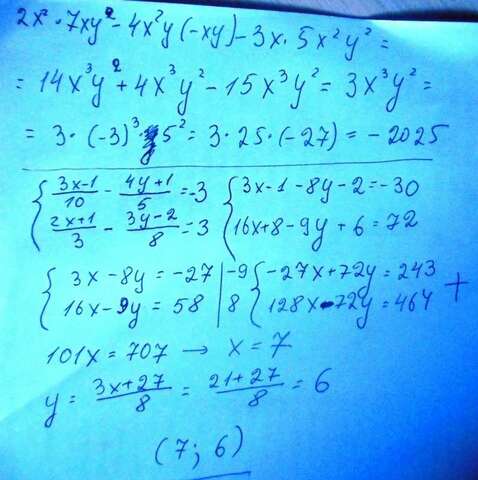 2x² · 7xy² - 4x²y(-xy) - 3x · 5x²y² =
= 14x³y² + 4x³y² - 15x³y² = 3x³y² =
= 3 · (-3)³ · 5² = 3 · 25 · (-27) = -2025
{ (3x-1)/10 - (4y+1)/5 = -3 { 3x-1-8y-2=-30
(2x+1)/3 - (3y-2)/8 = 3 16x+8-9y+6=72
{ 3x-8y=-27 | -9 { -27x+72y=243 +
16x-9y=58 | 8 128x-72y=464
101x=707 → x=7
y = (3x+27)/8 = (21+27)/8 = 6
(7; 6)